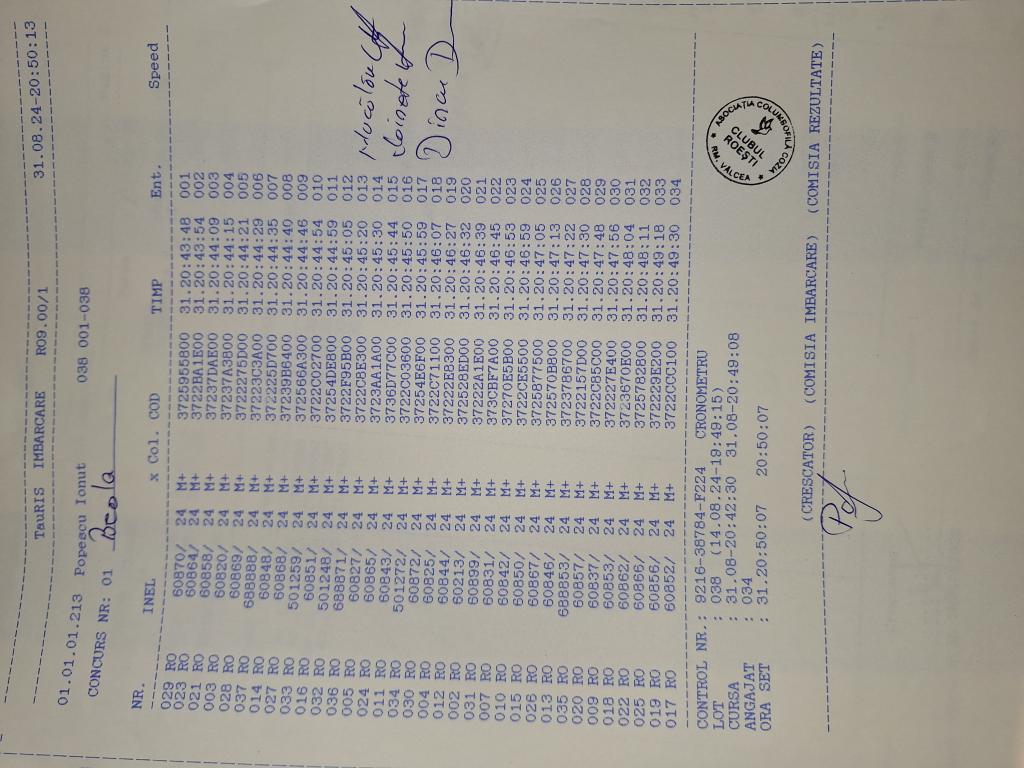 TauRIS IMBARCARE R09.00/1 31.08.24-20:50:13
01.01.01.213 Popescu Ionut 038 001-038
CONCURS NR: 01
NR. INEL x Col. COD TIMP Ent. Speed
029 RO 60870/ 24 M+ 3725955800 31.20:43:48 001
023 RO 60864/ 24 M+ 3722BA1E00 31.20:43:54 002
021 RO 60858/ 24 M+ 37237DAE00 31.20:44:09 003
003 RO 60820/ 24 M+ 37237A3800 31.20:44:15 004
028 RO 60869/ 24 M+ 3722275D00 31.20:44:21 005
037 RO 688888/ 24 M+ 37223C3A00 31.20:44:29 006
014 RO 60848/ 24 M+ 372225D700 31.20:44:35 007
027 RO 60868/ 24 M+ 37239B6400 31.20:44:40 008
033 RO 501269/ 24 M+ 372566A300 31.20:44:46 009
016 RO 60851/ 24 M+ 3722C02700 31.20:44:54 010
032 RO 501248/ 24 M+ 37254DEB00 31.20:44:59 011
036 RO 688871/ 24 M+ 3722F95B00 31.20:45:05 012
005 RO 60827/ 24 M+ 3722CBE300 31.20:45:20 013
024 RO 60865/ 24 M+ 3723AA1A00 31.20:45:30 014
011 RO 60843/ 24 M+ 3736D77C00 31.20:45:44 015
034 RO 501272/ 24 M+ 3722C03600 31.20:45:50 016
030 RO 60872/ 24 M+ 37254E6F00 31.20:45:59 017
004 RO 60825/ 24 M+ 3722C71100 31.20:46:07 018
012 RO 60844/ 24 M+ 37222B8300 31.20:46:27 019
002 RO 60213/ 24 M+ 372528ED00 31.20:46:32 020
031 RO 60899/ 24 M+ 37222A1E00 31.20:46:39 021
007 RO 60831/ 24 M+ 373CBF7A00 31.20:46:45 022
010 RO 60842/ 24 M+ 37270E5B00 31.20:46:53 023
015 RO 60850/ 24 M+ 3722CE5500 31.20:46:59 024
026 RO 60867/ 24 M+ 3725877500 31.20:47:05 025
013 RO 60846/ 24 M+ 372570BB00 31.20:47:13 026
035 RO 688853/ 24 M+ 3723786700 31.20:47:22 027
020 RO 60857/ 24 M+ 3722157D00 31.20:47:30 028
009 RO 60837/ 24 M+ 3722C85C00 31.20:47:48 029
018 RO 60853/ 24 M+ 372227E400 31.20:47:56 030
022 RO 60862/ 24 M+ 3723670E00 31.20:48:04 031
025 RO 60866/ 24 M+ 3725782B00 31.20:48:11 032
019 RO 60856/ 24 M+ 372229E200 31.20:49:18 033
017 RO 60852/ 24 M+ 3722CCC100 31.20:49:30 034
Dincu D
CONTROL NR.: 9216-38784-F224 CRONOMETRU
LOT : 038 (14.08.24-19:49:15)
CURSA : 31.08-20:42:30 31.08-20:49:08
ANGAJAT : 034
ORA SET : 31.20:50:07 20:50:07
ASOCIAȚIA COLUMBOFILĂ COZIA
CLUBUL
ROEȘTI
RM. VÂLCEA
(CRESCATOR) (COMISIA IMBARCARE) (COMISIA REZULTATE)